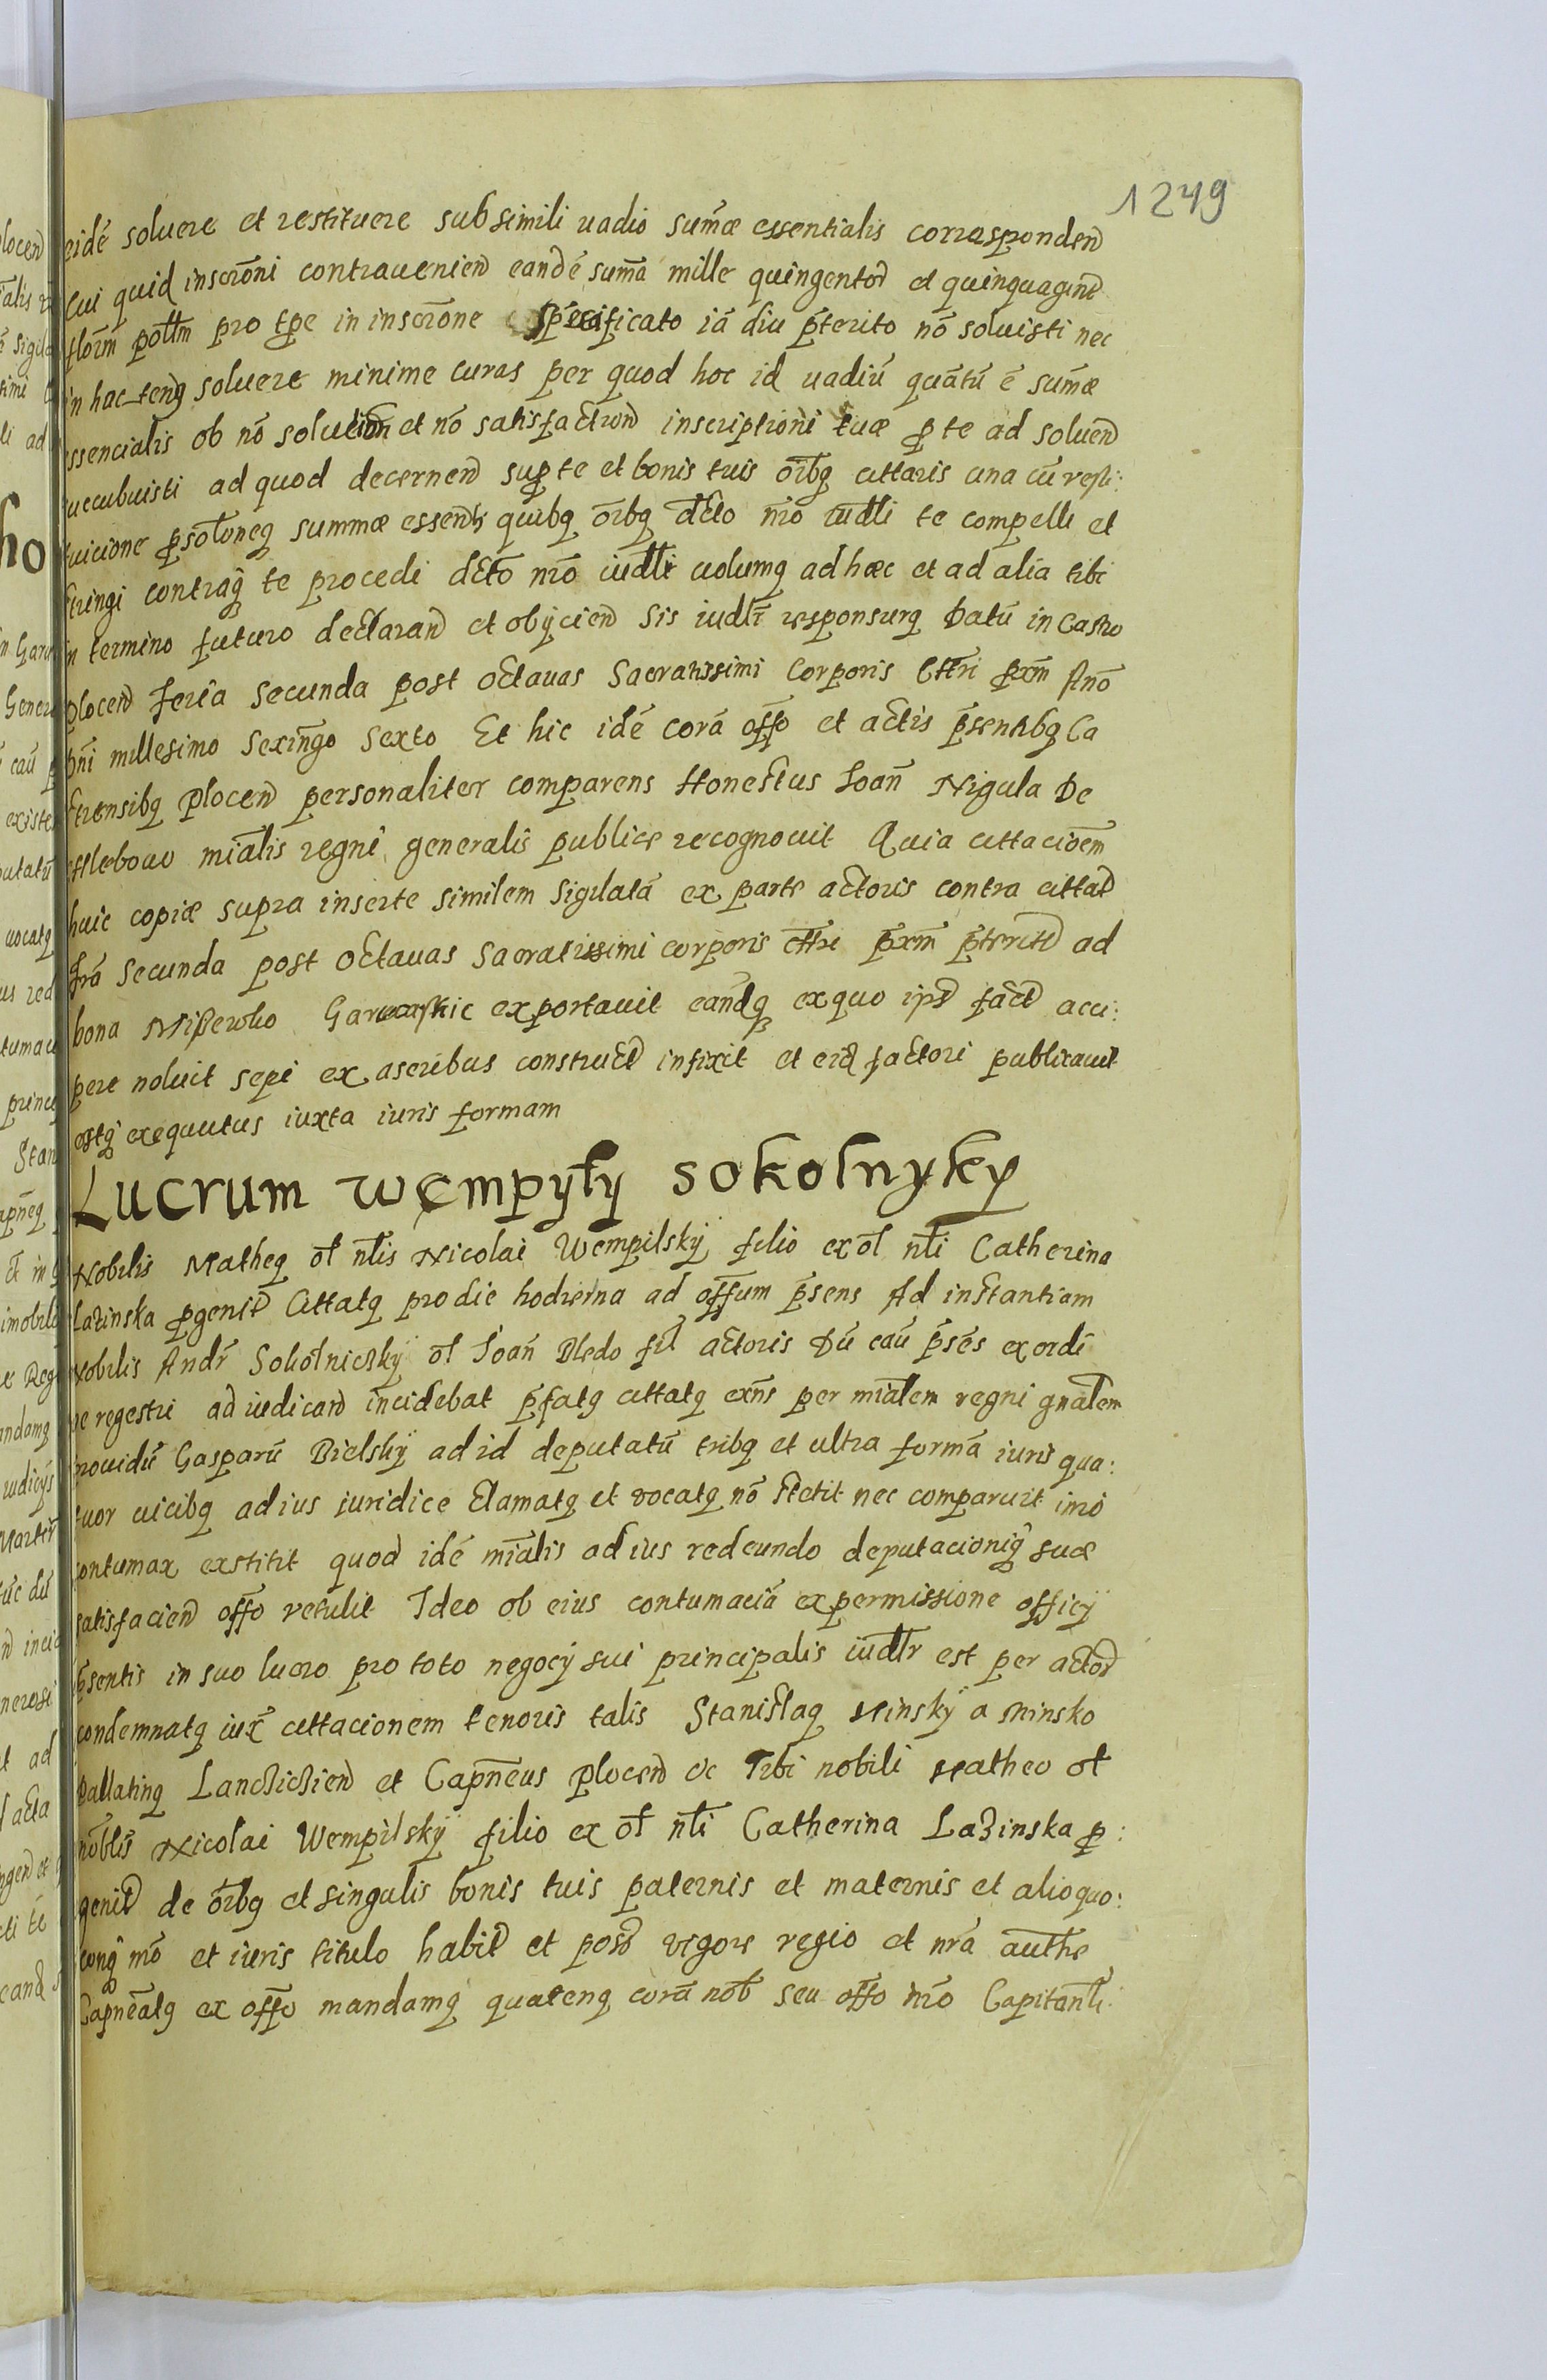 1249
eidẽ soluere et restituere sub simili uadio sum̃æ essentialis correspondend
Cui quid inscrõni contraueniend eandẽ sum̃ã mille quingentor et quinquagint
florm̃ poltm pro tpe in inscrõne specificato iã diu p̃terito nõ soluisti nec
in hac tenq soluere minime curas per quod hoc id uadiũ quãtũ ẽ sum̃æ
essencialis ob nõ solucion et nõ satisfaction inscriptioni tuæ p te ad soluend
succubuisti ad quod decernend sup te et bonis tuis õibq cittaris una cũ resti:
tuicione psoloneq summæ essentis quibq õibq dcto nrõ iudli te compelli et
stringi contraq te procedi dcto nrõ iudli uolumq ad hæc et ad alia tibi
in termino futuro declarand et obijciend sis iudlr responsurq Datũ in Castro
plocen feria secunda post octauas Sacratissimi Corporis Chri pxm Anõ
Dñi millesimo Sexingo sexto Et hic idẽ corã offo et actis p̃sentibq Ca
strensibq plocen personaliter comparens Honestus Ioañ Nigula De
Chlebowo miãlis regni generalis publice recognouit Quia cittacioem
huic copiæ supra inserte similem sigilatã ex parte actoris contra cittat
fr̃ã secunda post octauas sacratissimi corporis chri p̃xm p̃terit ad
bona exportauit eandq ex quo ips fact acci:
pere noluit sepi ex aseribus construct infixit et eiq factori publicauit
estq exequutus iuxta iuris formam
Lucrum Wempyly Sokolnyky
Nobilis Matheq ol nlis Nicolai Wempilskÿ filio ex ol nli Catherina
Lazinska pgenit Cittatq pro die hodierna ad offum p̃sens Ad instantiam
Nobilis Andr̃ Sokolniczkÿ ol Ioañ Bledo fil actoris Dũ caũ p̃sẽs ex ordi
ne regestri ad iudicand incidebat p̃fatq cittatq exñs per mialem regni gnalem
prouidũ Gasparũ Bielskÿ ad id deputatũ tribq et ultra formã iuris qua:
tuor uicibq ad ius iuridice clamatq et vocatq nõ stetit nec comparuit imõ
contumax exstitit quod idẽ mialis ad ius redeundo deputacioniq suæ
satisfaciend offo retulit Ideo ob eius contumaciã ex permissione officÿ
p̃sentis in suo lucro pro toto negocÿ sui principalis iudlr est per actor
condemnatq iux̃ cittacionem tenoris talis Stanislaq Minskÿ a Minsko
Pallatinq Lancziczien et Capñeus plocen &c Tibi nobili Matheo ol
noblis Nicolai Wempilskÿ filio ex ol nli Catherina Lazinska p:
genit de õibq et singulis bonis tuis paternis et maternis et alio quo:
conq mõ et iuris titulo habit et poss vigore regio et nrã authe
Capnẽatq ex offo mandamq quatenq corã nob seu offo nrõ Capitanli: